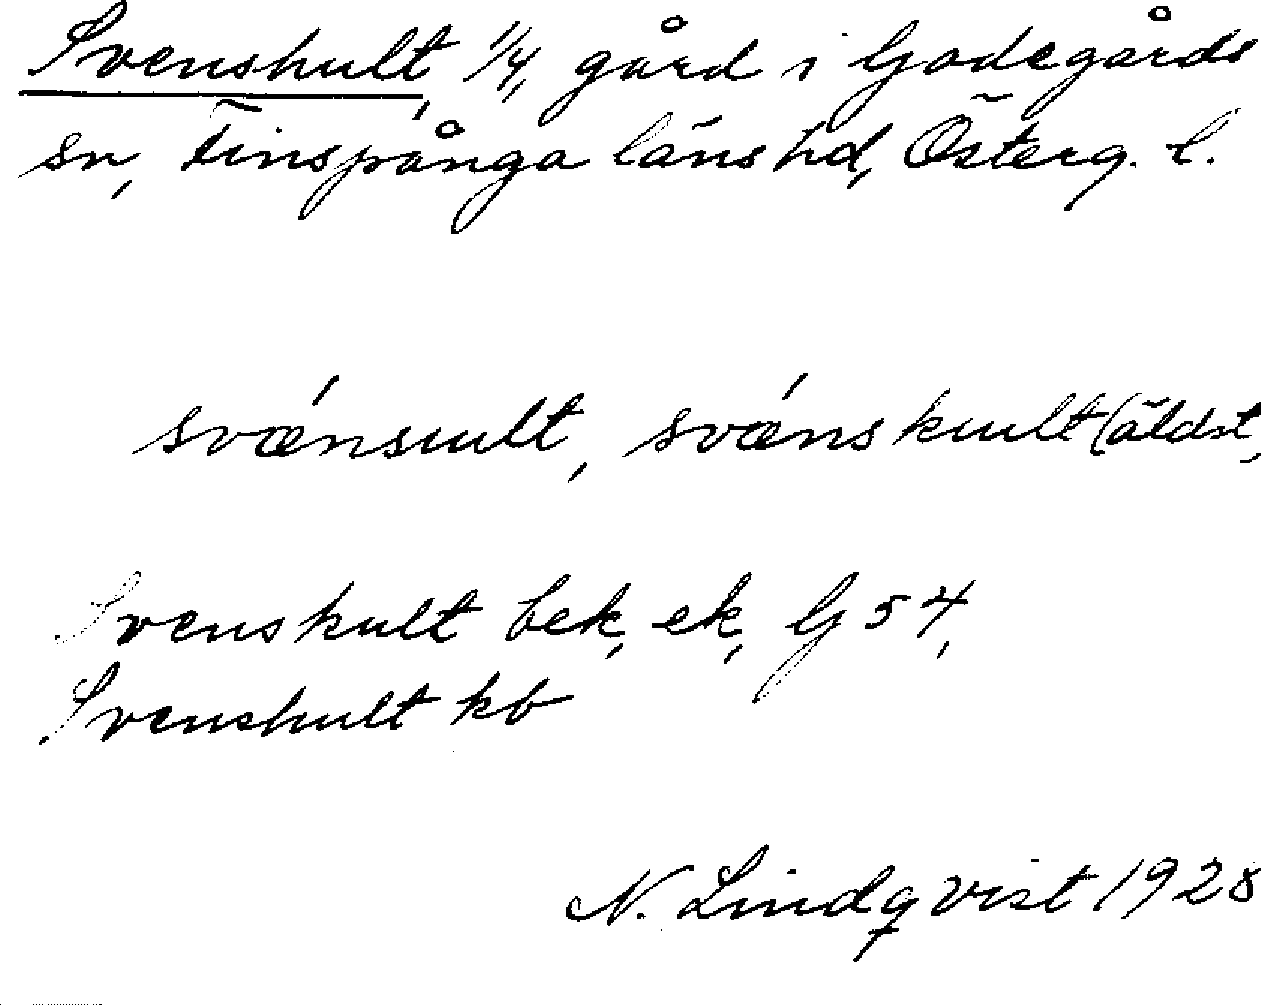 Svenshult, 1/4, gård i Godegårds
sn, Finspånga läns hd, Österg. l.
svǽnsult, svǽnskult (äldst,
Svenskult bek, ek, G 54,
Svenshult kb
N. Lindqvist 1928